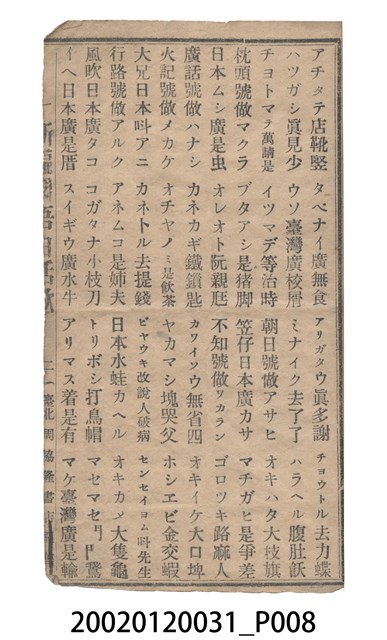 アチタテ店靴竪 タベナイ廣無食 アリガタウ眞多謝 チョウトル去力蝶
ハツガシ眞見少 ウソ臺灣廣梭屑 ミナイク去了了 ハラヘル腹肚飫
チヨトマテ萬請是 イツマデ等治時 朝日號做アサヒ オキハタ大枝旗
枕頭號做マクラ ブタアシ是猪脚 笠仔日本廣カサ マチガヒ是爭差
日本ムシ廣是虫 オレオト阮親尪 不知號做ワカラン ゴロツキ路寨人
廣話號做ハナシ カネカギ鐵鎖匙 カワイソウ無省四 オキイケ大口埤
火記號做メカケ オチヤノミ是飲茶 ヤカマシ塊哭父 ホシエビ金交蝦
大兄日本呌アニ カネトル去提錢 ビヤウキ改說人破病 センセイヨム呌先生
行路號做アルク アネムコ是姉夫 日本水蛙カヘル オキカメ大隻龜
風吹日本廣タコ コガタナ小枝刀 トリボシ打鳥帽 マセマセ鬥鬥鵞
イヘ日本廣是厝 スイギウ廣水牛 アリマス着是有 マケ臺灣廣是輸
二 臺北 周協隆書店
20020120031_P008